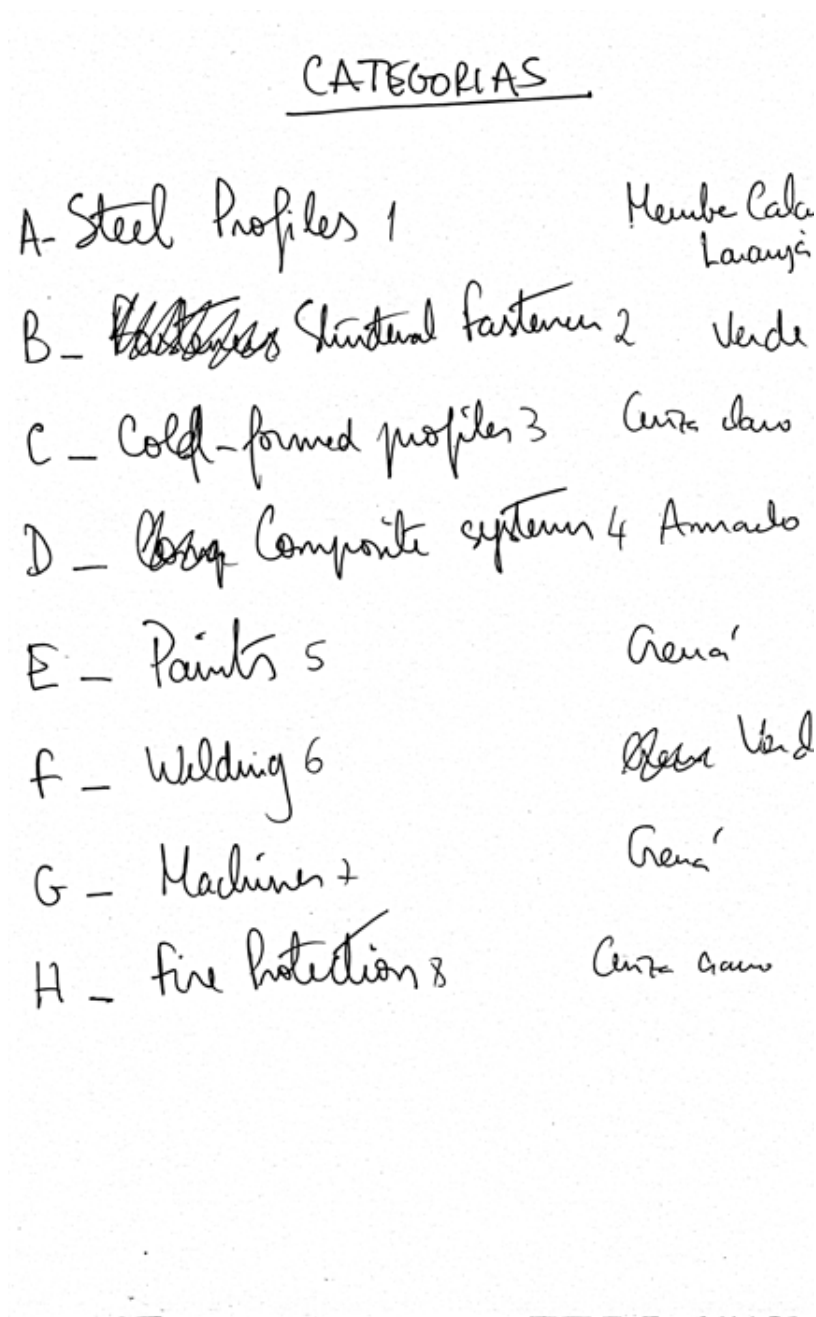 CATEGORIAS
A- Steel Profiles 1
Laranja
B - Structural Fasteners 2 Verde
C - Cold-formed profiles 3 Cinza claro
D - Composite systems 4
E - Paints 5 Grená
F - Welding 6
G - Machines 7 Grená
H - Fire Protection 8 Cinza